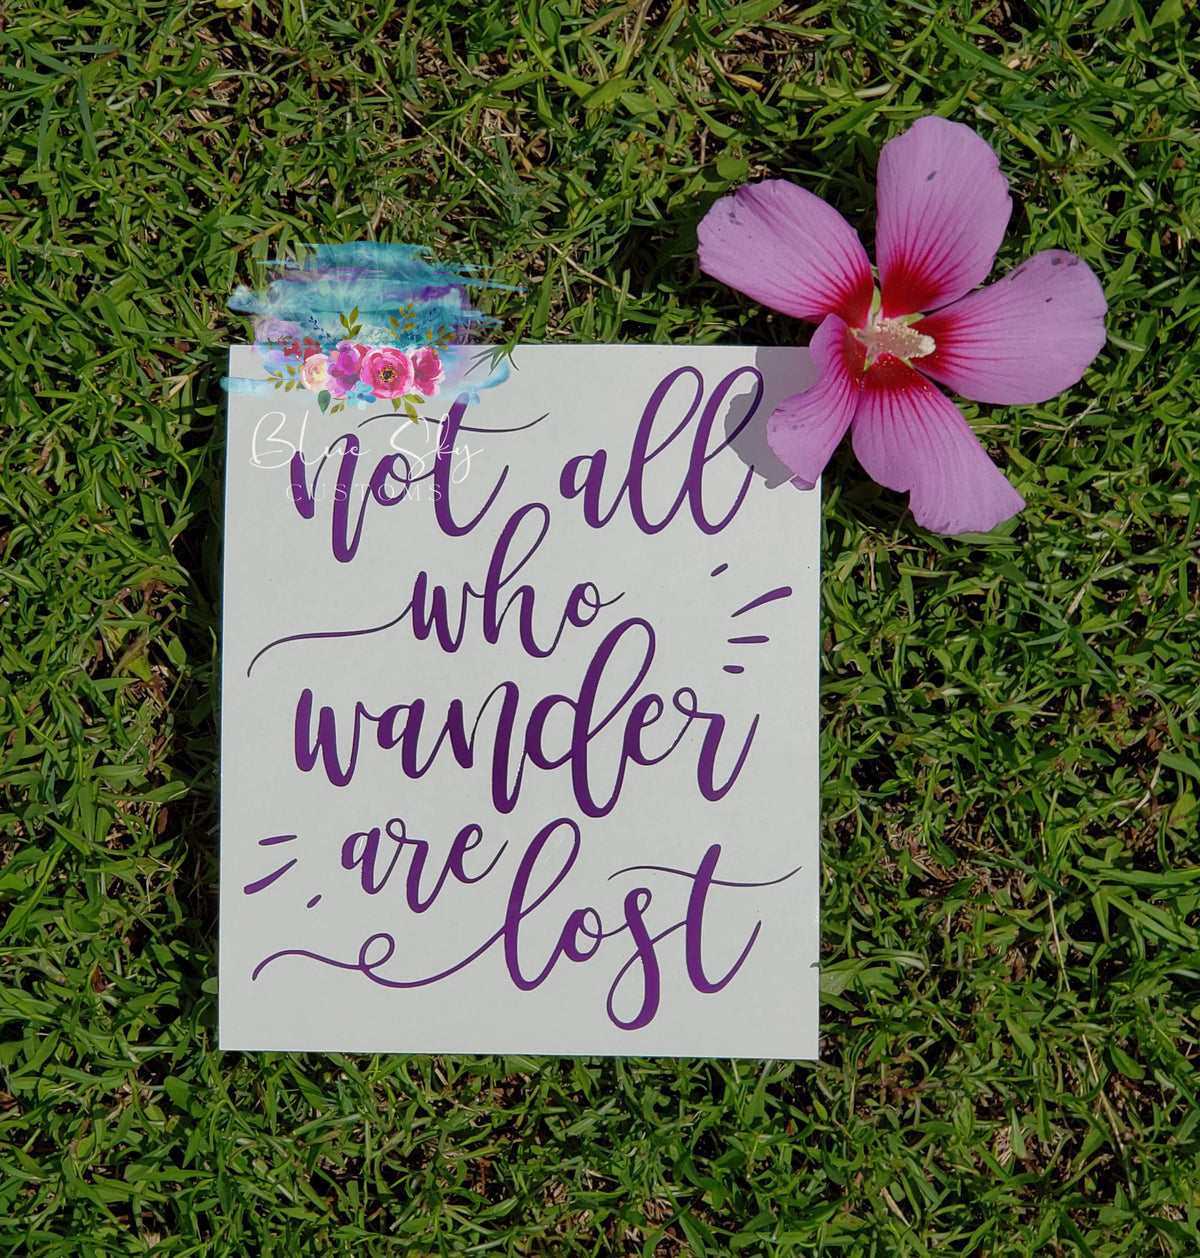 Blue Sky
CUSTOMS
not all
who
wander
are
lost